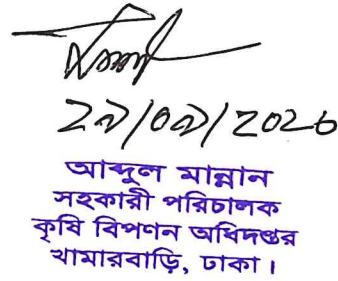 ২৯/০৯/২০২৩
আব্দুল মান্নান
সহকারী পরিচালক
কৃষি বিপণন অধিদপ্তর
খামারবাড়ি, ঢাকা।